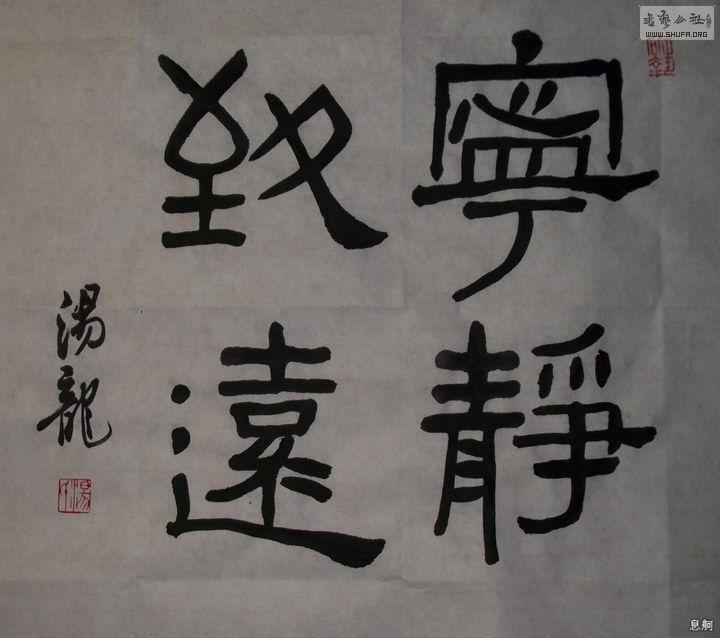 寧靜
致遠
湯龍
书艺公社
WWW.SHUFA.ORG
息舸